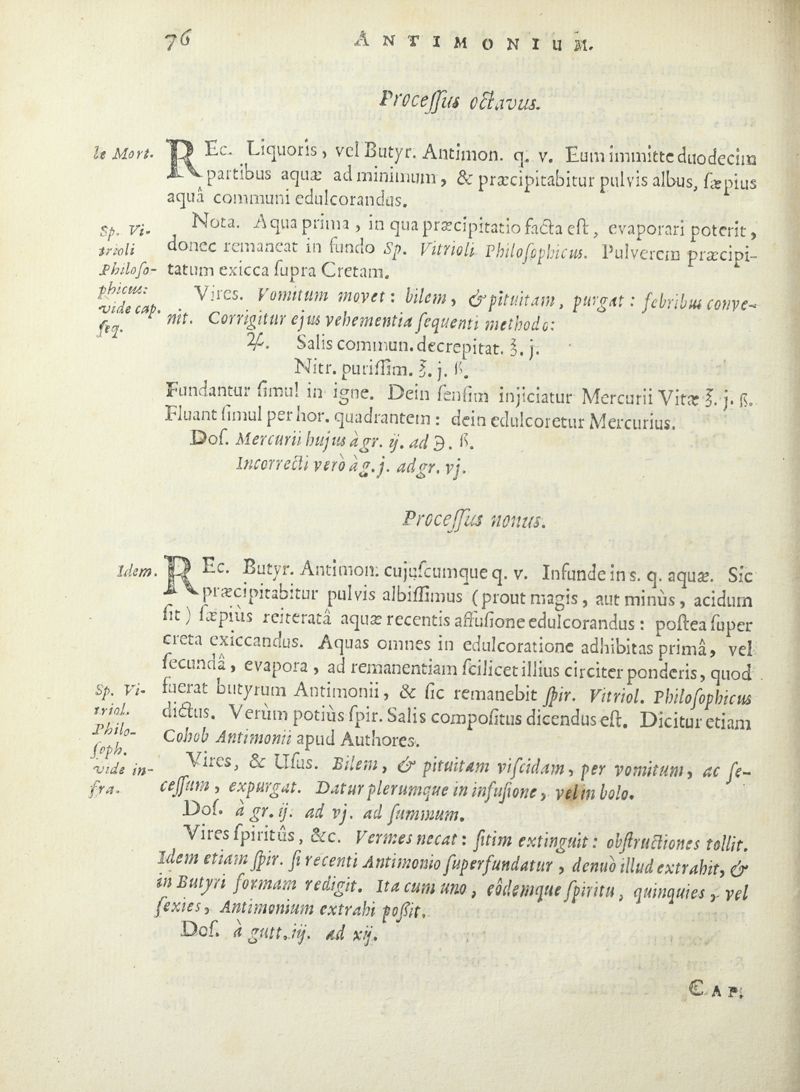 76 ANTIMONIUM.
Processus octavus.
le Mort. REc. Liquoris, vel Butyr. Antimon. q. v. Eum immitte duodecim
partibus aquæ ad minimum, & præcipitabitur pulvis albus, sæpius
aquâ communi edulcorandus.
Sp. Vi- Nota. Aqua prima, in qua præcipitatio facta est, evaporari poterit,
trioli donec remaneat in fundo Sp. Vitrioli Philosophicus. Pulverem præcipi-
Philoso- tatum exicca supra Cretam.
phicus:
vide cap. Vires. Vomitum movet: bilem, & pituitam, purgat: febribus conve-
seq. nit. Corrigitur ejus vehementia sequenti methodo:
♃. Salis commun. decrepitat. ℥. j.
Nitr. purissim. ℥. j. ß.
Fundantur simul in igne. Dein sensim injiciatur Mercurii Vitæ ℥. j. ß.
Fluant simul per hor. quadrantem: dein edulcoretur Mercurius.
Dos. Mercurii hujus à gr. ij. ad ℈. ß.
Incorrecti verò à g. j. ad gr. vj.
Processus nonus.
Idem. REc. Butyr. Antimon. cujuscumque q. v. Infunde in s. q. aquæ. Sic
præcipitabitur pulvis albissimus (prout magis, aut minùs, acidum
sit) sæpius reiteratâ aquæ recentis affusione edulcorandus: postea super
creta exiccandus. Aquas omnes in edulcoratione adhibitas primâ, vel
secundâ, evapora, ad remanentiam scilicet illius circiter ponderis, quod
Sp. Vi- fuerat butyrum Antimonii, & sic remanebit spir. Vitriol. Philosophicus
triol. dictus. Verùm potius spir. Salis compositus dicendus est. Dicitur etiam
Philo-
soph. Cohob Antimonii apud Authores.
vide in- Vires, & Usus. Bilem, & pituitam viscidam, per vomitum, ac se-
fra. cessum, expurgat. Datur plerumque in infusione, vel in bolo.
Dos. à gr. ij. ad vj. ad summum.
Vires spiritûs, &c. Vermes necat: sitim extinguit: obstructiones tollit.
Idem etiam spir. si recenti Antimonio superfundatur, denuò illud extrahit, &
in Butyri formam redigit. Ita cum uno, eôdemque spiritu, quinquies, vel
sexies, Antimonium extrahi possit.
Dos. à gutt. iij. ad xij.
CAP.